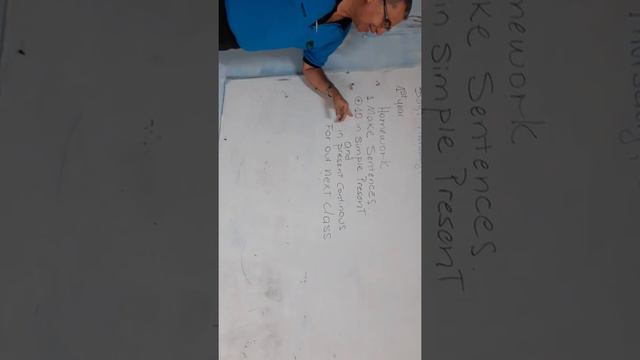 1st year
Homework
1. Make Sentences
10 in simple Present
and
in present continous
For our next class